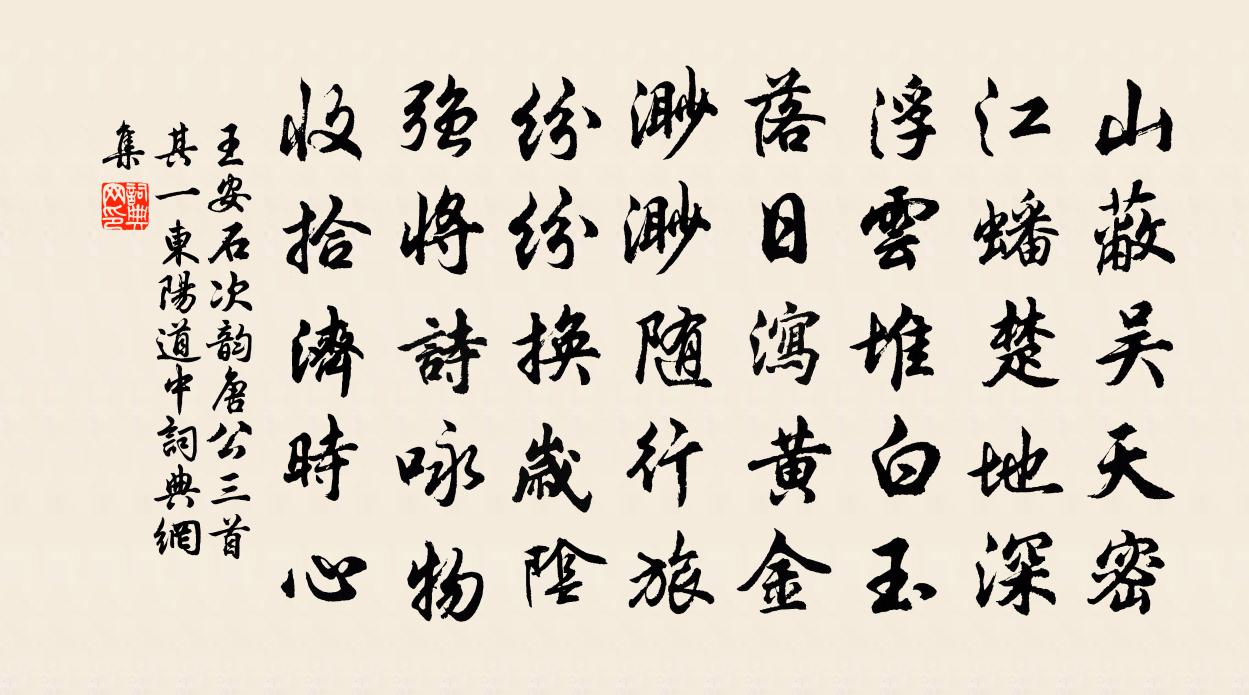 山蔽吴天密
江蟠楚地深
浮雲堆白玉
落日瀉黄金
渺渺随行旅
紛紛換歲陰
強將詩咏物
收拾濟時心
王安石次韵唐公三首
其一東陽道中詞典網
集
詞典网印